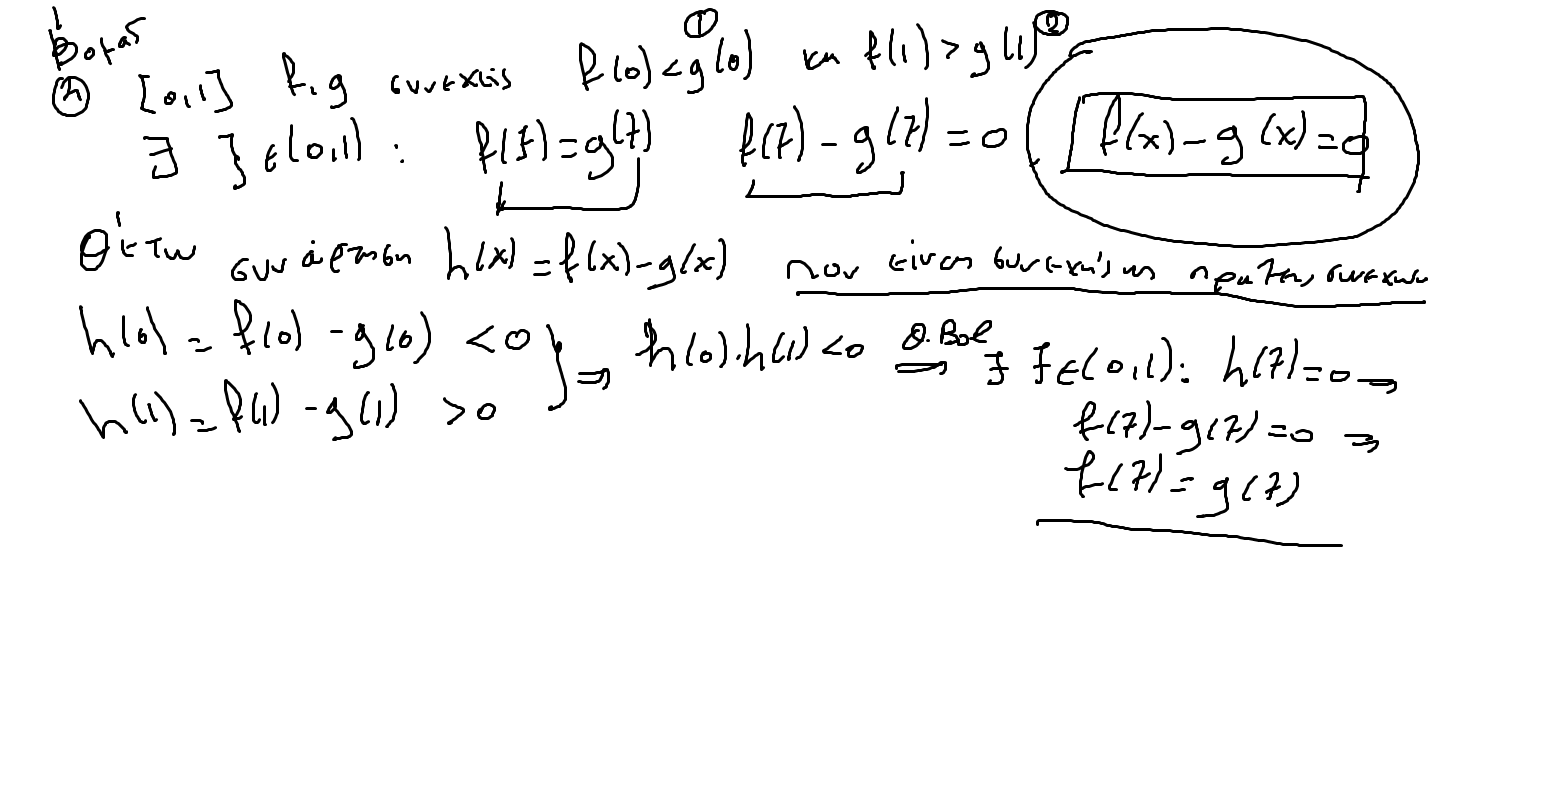 Βομας
② [0,1] f, g συνεχεις f(0)<g(0) ① και f(1)>g(1) ②
∃ ξ∈(0,1) : f(ξ)=g(ξ) f(ξ)-g(ξ)=0 f(x)-g(x)=0
Θέτω συνάρτηση h(x)=f(x)-g(x) που είναι συνεχής ως πράξεις συνεχών
h(0)=f(0)-g(0)<0 } ⇒ h(0).h(1)<0 Θ.Bol ⇒ ∃ ξ∈(0,1): h(ξ)=0 ⇒
h(1)=f(1)-g(1)>0
f(ξ)-g(ξ)=0 ⇒
f(ξ)=g(ξ)